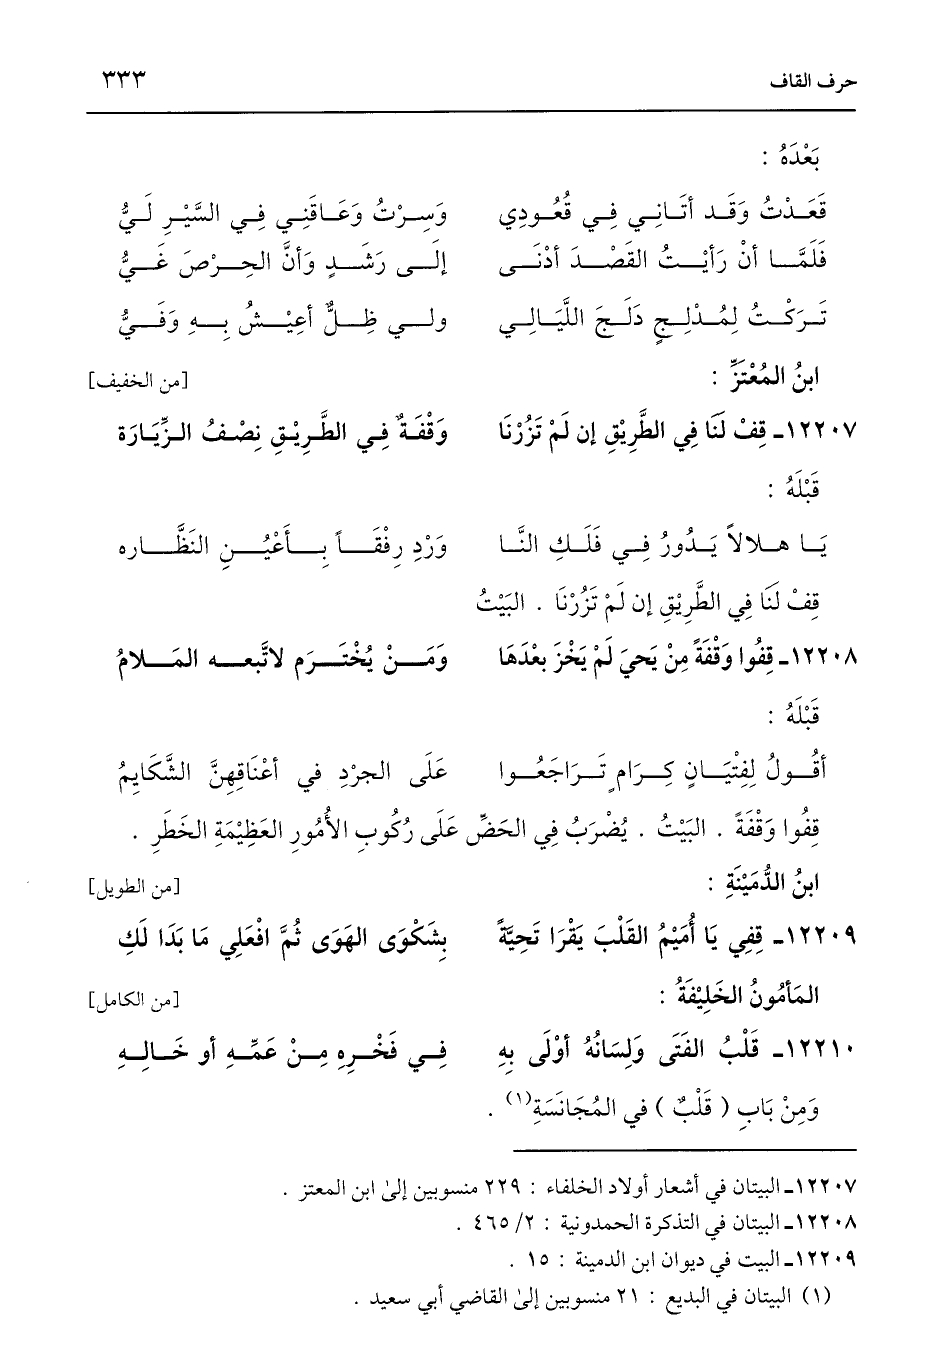 حرف القاف ٣٣٣
بَعْدَهُ :
قَعَدْتُ وَقَد أتَانِي فِي قُعُودِي وَسِرْتُ وَعَاقَنِي فِي السَّيْرِ لَيُّ
فَلَمَّا أنْ رَأيْتُ القَصْدَ أدْنَى إلَى رَشَدٍ وَأنَّ الحِرْصَ غَيُّ
تَرَكْتُ لِمُدْلِجٍ دَلَجَ اللَّيَالِي ولي ظِلٌّ أعِيْشُ بِهِ وَفَيُّ
ابنُ المُعْتَزِّ : [من الخفيف]
١٢٢٠٧ـ قِفْ لَنَا فِي الطَّرِيْقِ إن لَمْ تَزُرْنَا وَقْفَةٌ فِي الطَّرِيْقِ نِصْفُ الزِّيَارَة
قَبْلَهُ :
يَا هلالاً يَدُورُ فِي فَلَكِ النَّا وَرْدِ رِفْقَاً بِأَعْيُنِ النَظَّاره
قِفْ لَنَا فِي الطَّرِيْقِ إن لَمْ تَزُرْنَا . البَيْتُ
١٢٢٠٨ـ قِفُوا وَقْفَةً مِنْ يَحيَ لَمْ يَخْزَ بعْدَهَا وَمَنْ يُخْتَرَم لاتَّبعه المَلامُ
قَبْلَهُ :
أقُولُ لِفِتْيَانٍ كِرَامٍ تَرَاجَعُوا عَلَى الجرْدِ في أعْنَاقِهِنَّ الشَّكَايِمُ
قِفُوا وَقْفَةً . البَيْتُ . يُضْرَبُ فِي الحَضِّ عَلَى رُكُوبِ الأُمُورِ العَظِيْمَةِ الخَطَرِ .
ابنُ الدُّمَيْنَةِ : [من الطويل]
١٢٢٠٩ـ قِفِي يَا أُمَيْمُ القَلْبَ يَقْرَا تَحِيَّةً بِشَكْوَى الهَوَى ثُمَّ افْعَلِي مَا بَدَا لَكِ
المَأمُونُ الخَلِيْفَةُ : [من الكامل]
١٢٢١٠ـ قَلْبُ الفَتَى وَلِسَانُهُ أوْلَى بِهِ فِي فَخْرِهِ مِنْ عَمِّهِ أو خَالِهِ
وَمِنْ بَابِ ( قَلْبٌ ) في المُجَانَسَةِ(١) .
١٢٢٠٧ـ البيتان في أشعار أولاد الخلفاء : ٢٢٩ منسوبين إلىٰ ابن المعتز .
١٢٢٠٨ـ البيتان في التذكرة الحمدونية : ٢/ ٤٦٥ .
١٢٢٠٩ـ البيت في ديوان ابن الدمينة : ١٥ .
(١) البيتان في البديع : ٢١ منسوبين إلىٰ القاضي أبي سعيد .